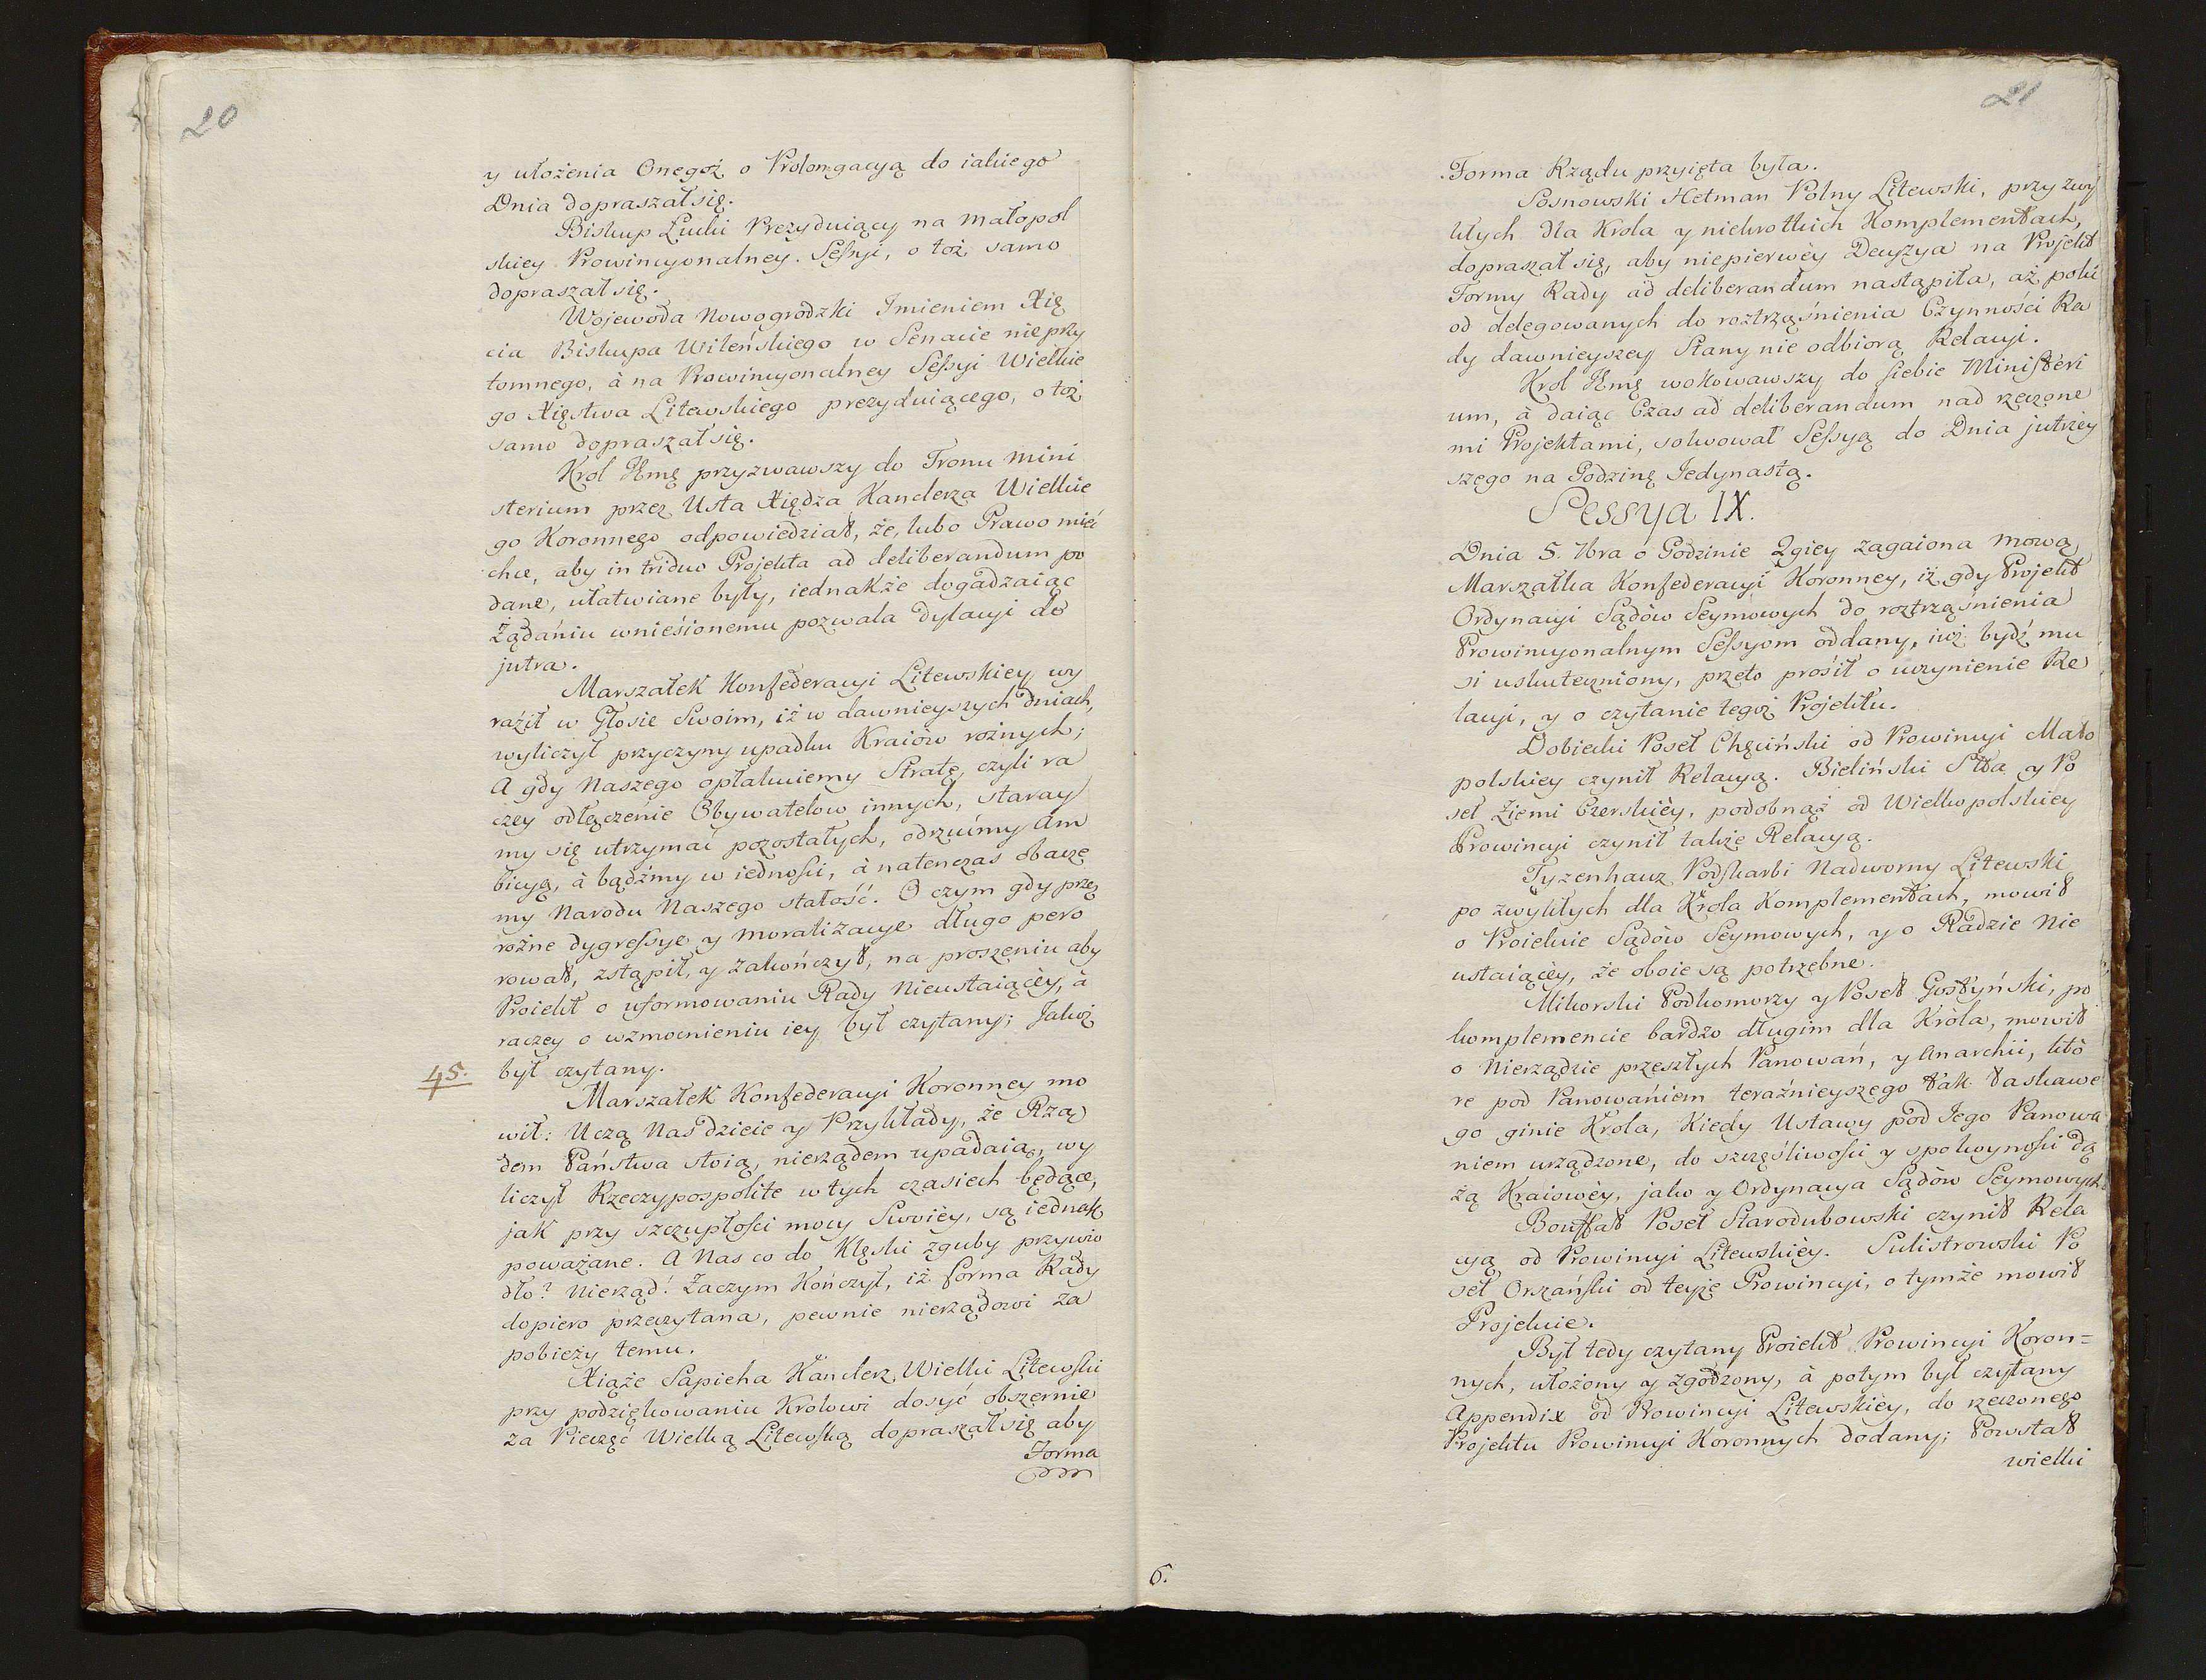 20
y ułożenia Onegoż, o Prolongacyą do iakiego
Dnia dopraszał się.
Biskup Łucki Prezyduiący na Małopol
skiey Prowincyonalney Sessyi, o toż samo
dopraszał się.
Wojewoda Nowogrodzki Imieniem Xię
cia Biskupa Wileńskiego w Senacie nieprzy
tomnego, à na Prowincyonalney Sessyi Wielkie
go Xięstwa Litewskiego prezyduiącego, o toż
samo dopraszał się.
Krol Jmę przyzwawszy do Tronu Mini
sterium przez Usta Xiędza Kanclerza Wielkie
go Koronnego odpowiedział, że, lubo Prawo mieć
chce, aby in triduo Projekta ad deliberandum po
dane, ułatwiane były, iednakże dogadzaiąc
Żądaniu wnieśionemu pozwala dylacyi do
jutra.
Marszałek Konfederacyi Litewskiey wy
raźił w Głosie Swoim, iż w dawnieyszych dniach,
wyliczył przyczyny upadku Kraiòw rożnych;
A gdy Naszego opłakuiemy Stratę, czyli ra
czey odłączenie Obywatelow innych, staray
my się utrzymać pozostałych, odrzućmy Am
bicyą, à bądźmy w iedności, à natenczas obaczę
my Narodu Naszego stałość. O czym gdy przez
rożne dygressye y moralizacye długo pero
rował, zstąpił, y zakończył, na proszeniu aby
Proiekt o uformowaniu Rady Nieustaiącèy, à
raczey o wzmocnieniu iey był czytany; Jakoż
był czytany.
45.
Marszałek Konfederacyi Koronney mo
wił: Uczą Nas dzieie y Przykłady, że Rzą
dem Państwa stoią, nierządem upadaią, wy
liczył Rzeczypospolite w tych czasiech będące,
jak przy szczupłości mocy Swoièy, są iednak
poważane. A Nas co do Klęski zguby przywio
dło? Nierząd! Zaczym Kończył, iż forma Rady
dopiero przeczytana, pewnie nierządowi za
pobieży temu.
Xiąże Sapieha Kanclerz Wielki Litewski
przy podziękowaniu Krolowi dosyć obszernie
za Pieczęć Wielką Litewską dopraszał się aby
Forma
21
Forma Rządu przyięta była.
Sosnowski Hetman Polny Litewski, przy zwy
kłych dla Krola y niekrotkich Komplementach,
dopraszał się, aby niepierwèy Decyzya na Projekt
Formy Rady ad deliberandum nastąpiła, aż poki
od delegowanych do roztrząśnienia Czynności Ra
dy dawnieyszey Stany nie odbiorą Relacyi.
Krol Jmę wokowawszy do siebie Ministeri
um, à daiąc Czas ad deliberandum nad rzeczone
mi Projektami, solwował Sessyą do Dnia jutrzey
szego na Godzinę Jedynastą.
Sessya IX.
Dnia 5. 7bra o Godzinie 2giey zagaiona mową
Marszałka Konfederacyi Koronney, iż gdy Projekt
Ordynacyi Sądòw Seymowych do roztrząśnienia
Prowincyonalnym Sessyom oddany, iuż bydź mu
si uskuteczniony, przeto prośił o uczynienie Re
lacyi, y o czytanie tegoż Projektu.
Dobiecki Poseł Chęciński od Prowincyi Mało
polskiey czynił Relacyą. Bieliński Sttta y Po
seł Ziemi Czerskièy, podobnąż od Wielkopolskiey
Prowincyi czynił takżę Relacyą.
Tyzenhauz Podskarbi Nadworny Litewski
po zwykłych dla Krola Komplementach, mowił
o Proiekcie Sądòw Seymowych, y o Radzie Nie
ustaiącèy, że oboie są potrzebne.
Mikorski Podkomorzy y Poseł Gostyński, po
komplemencie bardzo długim dla Kròla, mowił
o Nierządzie przeszłych Panowań, y Anarchii, któ
re pod Panowaniem teraźnieyszego tak łaskawe
go ginie Krola, Kiedy Ustawy pod Jego Panowa
niem urządzone, do szczęśliwości y spokoyności dą
żą Kraiowèy, jako y Ordynacya Sądòw Seymowych.
Bouffał Poseł Starodubowski czynił Rela
cyą od Prowincyi Litewskièy. Sulistrowski Po
seł Orszański od teyże Prowincyi, o tymże mowił
Projekcie.
Był tedy czytany Proiekt Prowincyi Koron=
nych, ułożony y zgodzony, à potym był czytany
Appendix od Prowincyi Litewskièy, do rzeczonego
Projektu Prowincyi Koronnych dodany; Powstał
wielki
6.